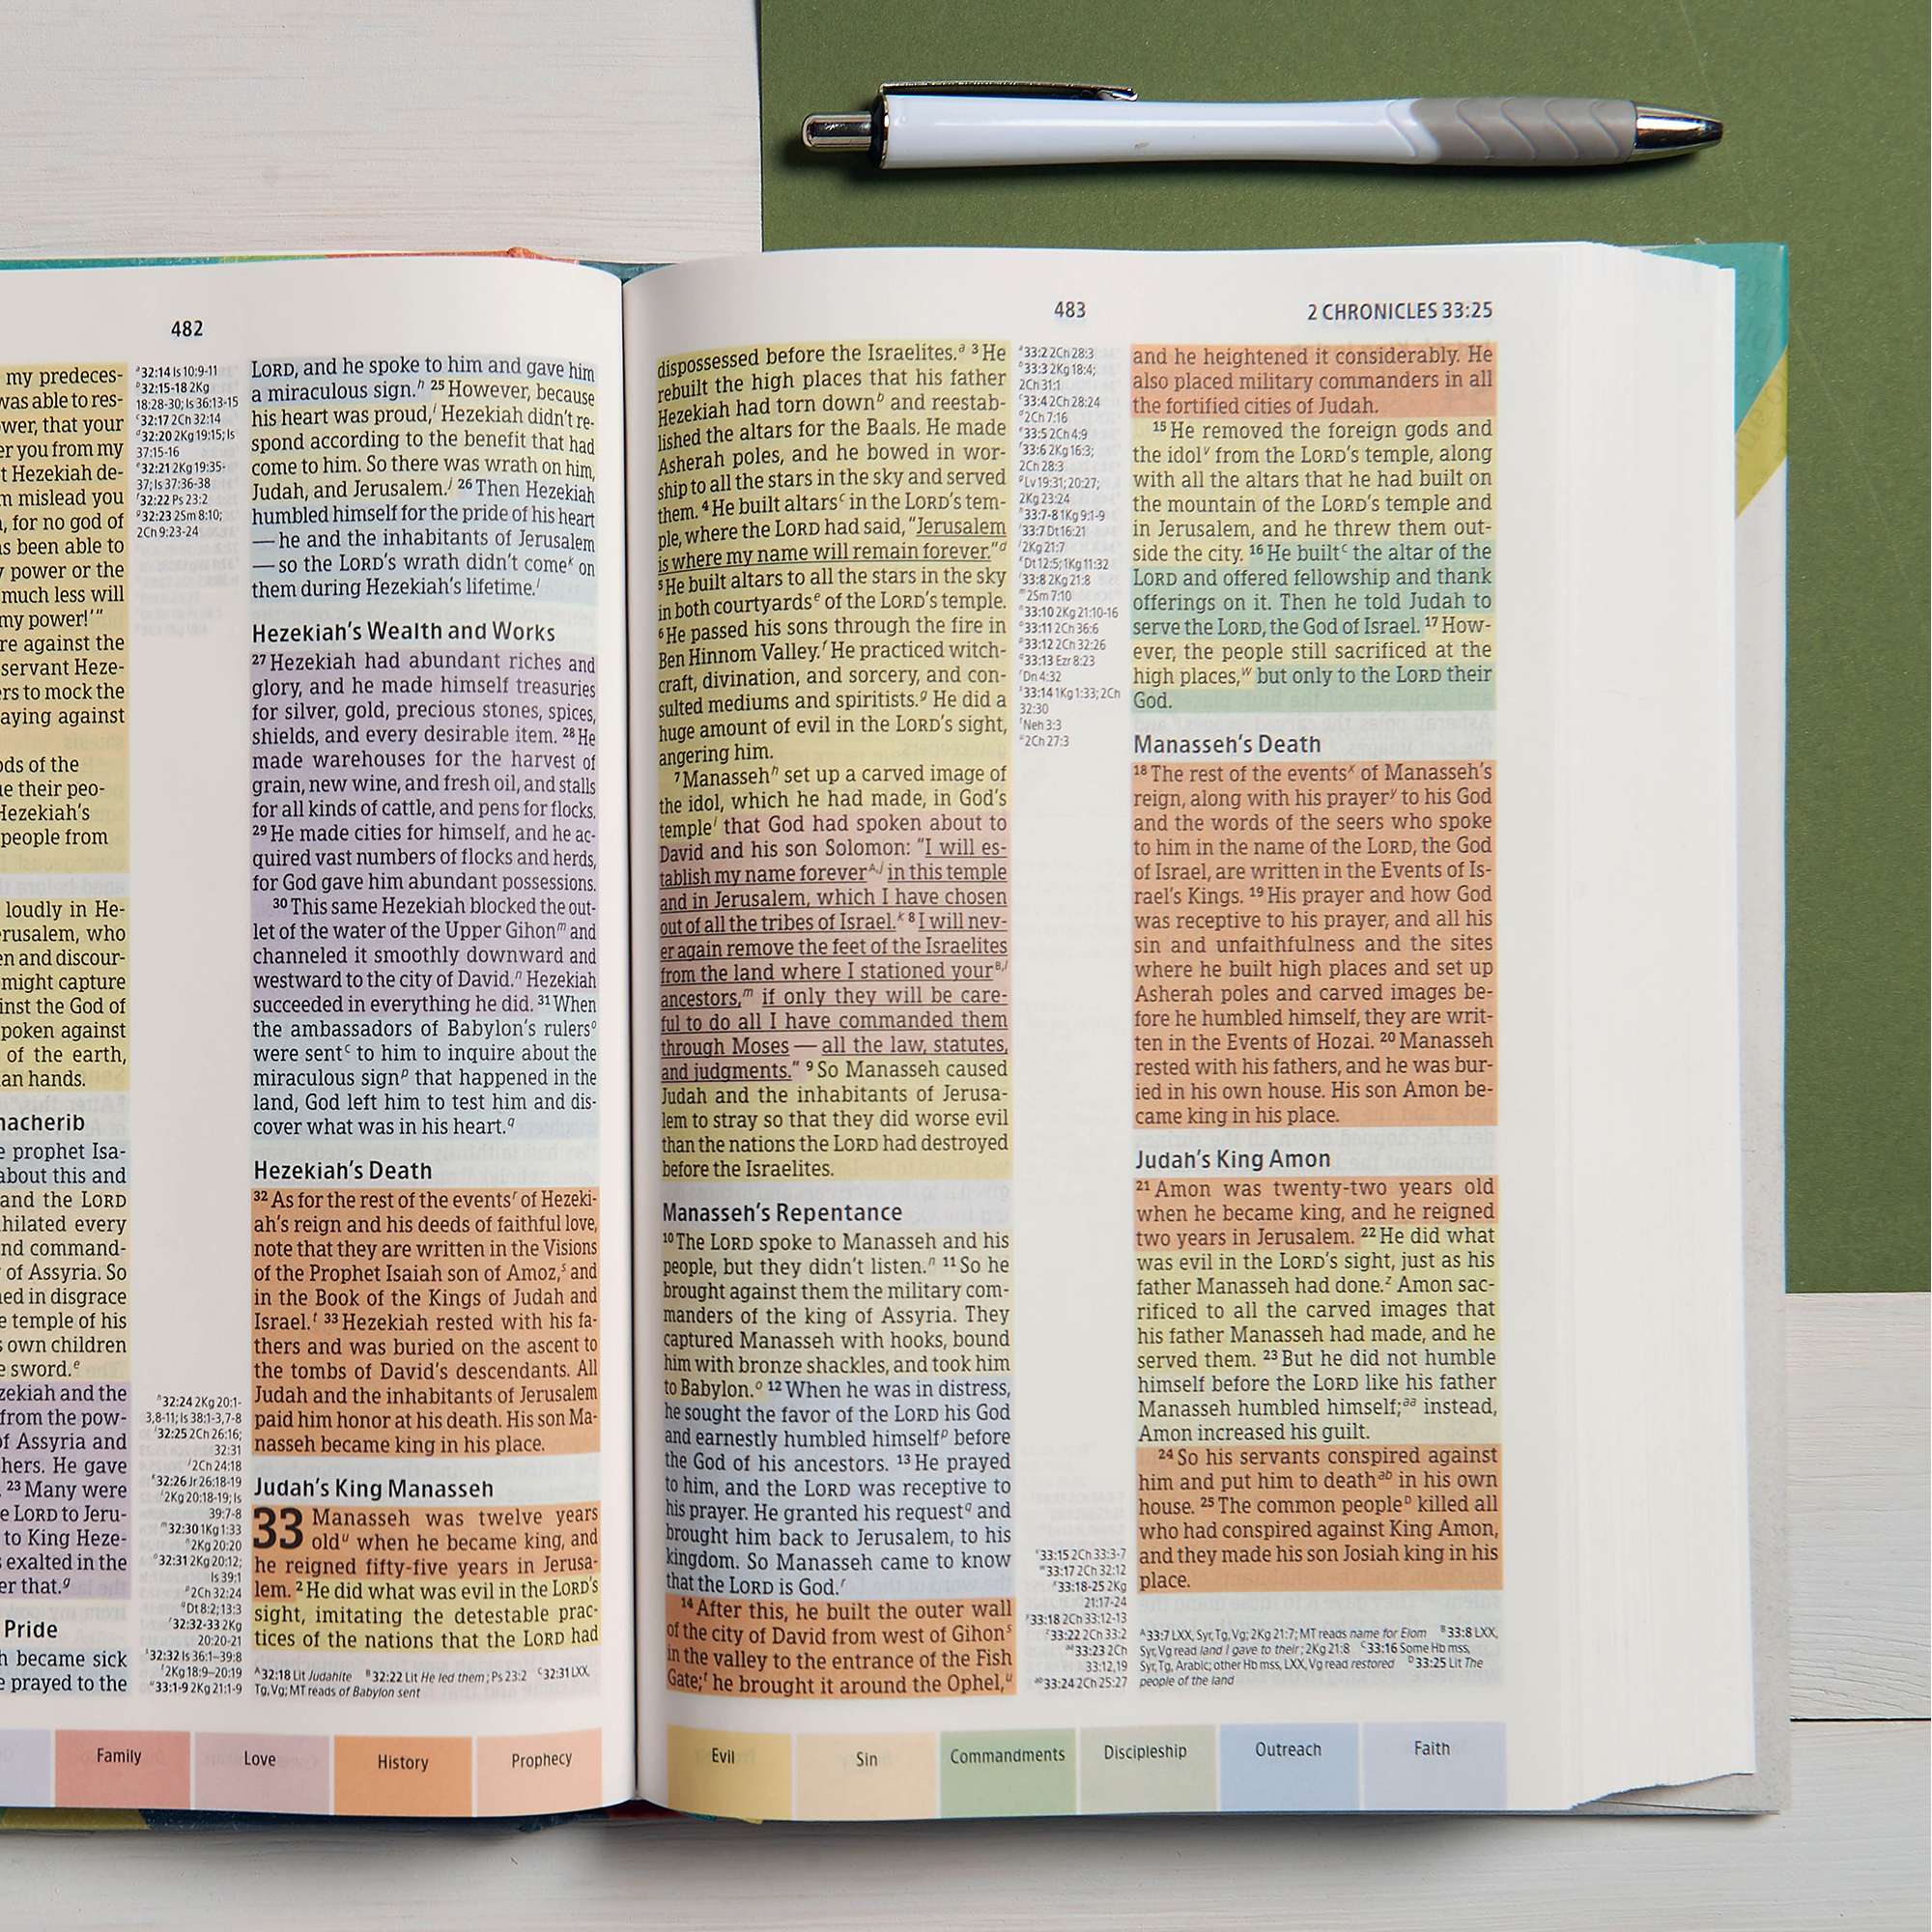 482
my predeces-
was able to res-
ower, that your
er you from my
t Hezekiah de-
n mislead you
, for no god of
s been able to
power or the
much less will
my power!'"
re against the
servant Heze-
ers to mock the
aying against
ods of the
e their peo-
Hezekiah's
people from
loudly in He-
erusalem, who
en and discour-
might capture
inst the God of
poken against
of the earth,
an hands.
nacherib
e prophet Isa-
about this and
and the LORD
hilated every
nd command-
of Assyria. So
ned in disgrace
e temple of his
s own children
e sword.e
zekiah and the
from the pow-
of Assyria and
hers. He gave
23 Many were
e LORD to Jeru-
to King Heze-
exalted in the
er that.g
Pride
h became sick
e prayed to the
a32:14 Is 10:9-11
b32:15-18 2Kg
18:28-30; Is 36:13-15
c32:17 2Ch 32:14
d32:20 2Kg 19:15; Is
37:15-16
e32:21 2Kg 19:35-
37; Is 37:36-38
f32:22 Ps 23:2
g32:23 2Sm 8:10;
2Ch 9:23-24
h32:24 2Kg 20:1-
3,8-11; Is 38:1-3,7-8
i32:25 2Ch 26:16;
32:31
j2Ch 24:18
k32:26 Jr 26:18-19
l2Kg 20:18-19; Is
39:7-8
m32:30 1Kg 1:33
n2Kg 20:20
o32:31 2Kg 20:12;
Is 39:1
p2Ch 32:24
qDt 8:2; 13:3
r32:32-33 2Kg
20:20-21
s32:32 Is 36:1–39:8
t2Kg 18:9–20:19
u33:1-9 2Kg 21:1-9
LORD, and he spoke to him and gave him
a miraculous sign.h 25 However, because
his heart was proud,i Hezekiah didn't re-
spond according to the benefit that had
come to him. So there was wrath on him,
Judah, and Jerusalem.j 26 Then Hezekiah
humbled himself for the pride of his heart
— he and the inhabitants of Jerusalem
— so the LORD's wrath didn't comek on
them during Hezekiah's lifetime.l
Hezekiah's Wealth and Works
27 Hezekiah had abundant riches and
glory, and he made himself treasuries
for silver, gold, precious stones, spices,
shields, and every desirable item. 28 He
made warehouses for the harvest of
grain, new wine, and fresh oil, and stalls
for all kinds of cattle, and pens for flocks.
29 He made cities for himself, and he ac-
quired vast numbers of flocks and herds,
for God gave him abundant possessions.
30 This same Hezekiah blocked the out-
let of the water of the Upper Gihonm and
channeled it smoothly downward and
westward to the city of David.n Hezekiah
succeeded in everything he did. 31 When
the ambassadors of Babylon's rulerso
were sentC to him to inquire about the
miraculous signp that happened in the
land, God left him to test him and dis-
cover what was in his heart.q
Hezekiah's Death
32 As for the rest of the eventsr of Hezeki-
ah's reign and his deeds of faithful love,
note that they are written in the Visions
of the Prophet Isaiah son of Amoz,s and
in the Book of the Kings of Judah and
Israel.t 33 Hezekiah rested with his fa-
thers and was buried on the ascent to
the tombs of David's descendants. All
Judah and the inhabitants of Jerusalem
paid him honor at his death. His son Ma-
nasseh became king in his place.
Judah's King Manasseh
33 Manasseh was twelve years
oldu when he became king, and
he reigned fifty-five years in Jerusa-
lem. 2 He did what was evil in the LORD's
sight, imitating the detestable prac-
tices of the nations that the LORD had
A32:18 Lit Judahite B32:22 Lit He led them; Ps 23:2 C32:31 LXX,
Tg, Vg; MT reads of Babylon sent
Family
Love
History
Prophecy
483
2 CHRONICLES 33:25
dispossessed before the Israelites.a 3 He
rebuilt the high places that his father
Hezekiah had torn downb and reestab-
lished the altars for the Baals. He made
Asherah poles, and he bowed in wor-
ship to all the stars in the sky and served
them. 4 He built altarsc in the LORD's tem-
ple, where the LORD had said, "Jerusalem
is where my name will remain forever."d
5 He built altars to all the stars in the sky
in both courtyardse of the LORD's temple.
6 He passed his sons through the fire in
Ben Hinnom Valley.f He practiced witch-
craft, divination, and sorcery, and con-
sulted mediums and spiritists.g He did a
huge amount of evil in the LORD's sight,
angering him.
7 Manassehh set up a carved image of
the idol, which he had made, in God's
templei that God had spoken about to
David and his son Solomon: "I will es-
tablish my name foreverA,j in this temple
and in Jerusalem, which I have chosen
out of all the tribes of Israel.k 8 I will nev-
er again remove the feet of the Israelites
from the land where I stationed yourB,l
ancestors,m if only they will be care-
ful to do all I have commanded them
through Moses — all the law, statutes,
and judgments." 9 So Manasseh caused
Judah and the inhabitants of Jerusa-
lem to stray so that they did worse evil
than the nations the LORD had destroyed
before the Israelites.
Manasseh's Repentance
10 The LORD spoke to Manasseh and his
people, but they didn't listen.n 11 So he
brought against them the military com-
manders of the king of Assyria. They
captured Manasseh with hooks, bound
him with bronze shackles, and took him
to Babylon.o 12 When he was in distress,
he sought the favor of the LORD his God
and earnestly humbled himselfp before
the God of his ancestors. 13 He prayed
to him, and the LORD was receptive to
his prayer. He granted his requestq and
brought him back to Jerusalem, to his
kingdom. So Manasseh came to know
that the LORD is God.r
14 After this, he built the outer wall
of the city of David from west of Gihons
in the valley to the entrance of the Fish
Gate;t he brought it around the Ophel,u
a33:2 2Ch 28:3
b33:3 2Kg 18:4;
2Ch 31:1
c33:4 2Ch 28:24
d2Ch 7:16
e33:5 2Ch 4:9
f33:6 2Kg 16:3;
2Ch 28:3
gLv 19:31; 20:27;
2Kg 23:24
h33:7-8 1Kg 9:1-9
i33:7 Dt 16:21
j2Kg 21:7
kDt 12:5; 1Kg 11:32
l33:8 2Kg 21:8
m2Sm 7:10
n33:10 2Kg 21:10-16
o33:11 2Ch 36:6
p33:12 2Ch 32:26
q33:13 Ezr 8:23
rDn 4:32
s33:14 1Kg 1:33; 2Ch
32:30
tNeh 3:3
u2Ch 27:3
v33:15 2Ch 33:3-7
w33:17 2Ch 32:12
x33:18-25 2Kg
21:17-24
y33:18 2Ch 33:12-13
z33:22 2Ch 33:2
aa33:23 2Ch
33:12,19
ab33:24 2Ch 25:27
and he heightened it considerably. He
also placed military commanders in all
the fortified cities of Judah.
15 He removed the foreign gods and
the idolv from the LORD's temple, along
with all the altars that he had built on
the mountain of the LORD's temple and
in Jerusalem, and he threw them out-
side the city. 16 He builtC the altar of the
LORD and offered fellowship and thank
offerings on it. Then he told Judah to
serve the LORD, the God of Israel. 17 How-
ever, the people still sacrificed at the
high places,w but only to the LORD their
God.
Manasseh's Death
18 The rest of the eventsx of Manasseh's
reign, along with his prayery to his God
and the words of the seers who spoke
to him in the name of the LORD, the God
of Israel, are written in the Events of Is-
rael's Kings. 19 His prayer and how God
was receptive to his prayer, and all his
sin and unfaithfulness and the sites
where he built high places and set up
Asherah poles and carved images be-
fore he humbled himself, they are writ-
ten in the Events of Hozai. 20 Manasseh
rested with his fathers, and he was bur-
ied in his own house. His son Amon be-
came king in his place.
Judah's King Amon
21 Amon was twenty-two years old
when he became king, and he reigned
two years in Jerusalem. 22 He did what
was evil in the LORD's sight, just as his
father Manasseh had done.z Amon sac-
rificed to all the carved images that
his father Manasseh had made, and he
served them. 23 But he did not humble
himself before the LORD like his father
Manasseh humbled himself;aa instead,
Amon increased his guilt.
24 So his servants conspired against
him and put him to deathab in his own
house. 25 The common peopleD killed all
who had conspired against King Amon,
and they made his son Josiah king in his
place.
A33:7 LXX, Syr, Tg, Vg; 2Kg 21:7; MT reads name for Elom B33:8 LXX,
Syr, Vg read land I gave to their; 2Kg 21:8 C33:16 Some Hb mss,
Syr, Tg, Arabic; other Hb mss, LXX, Vg read restored D33:25 Lit The
people of the land
Evil
Sin
Commandments
Discipleship
Outreach
Faith